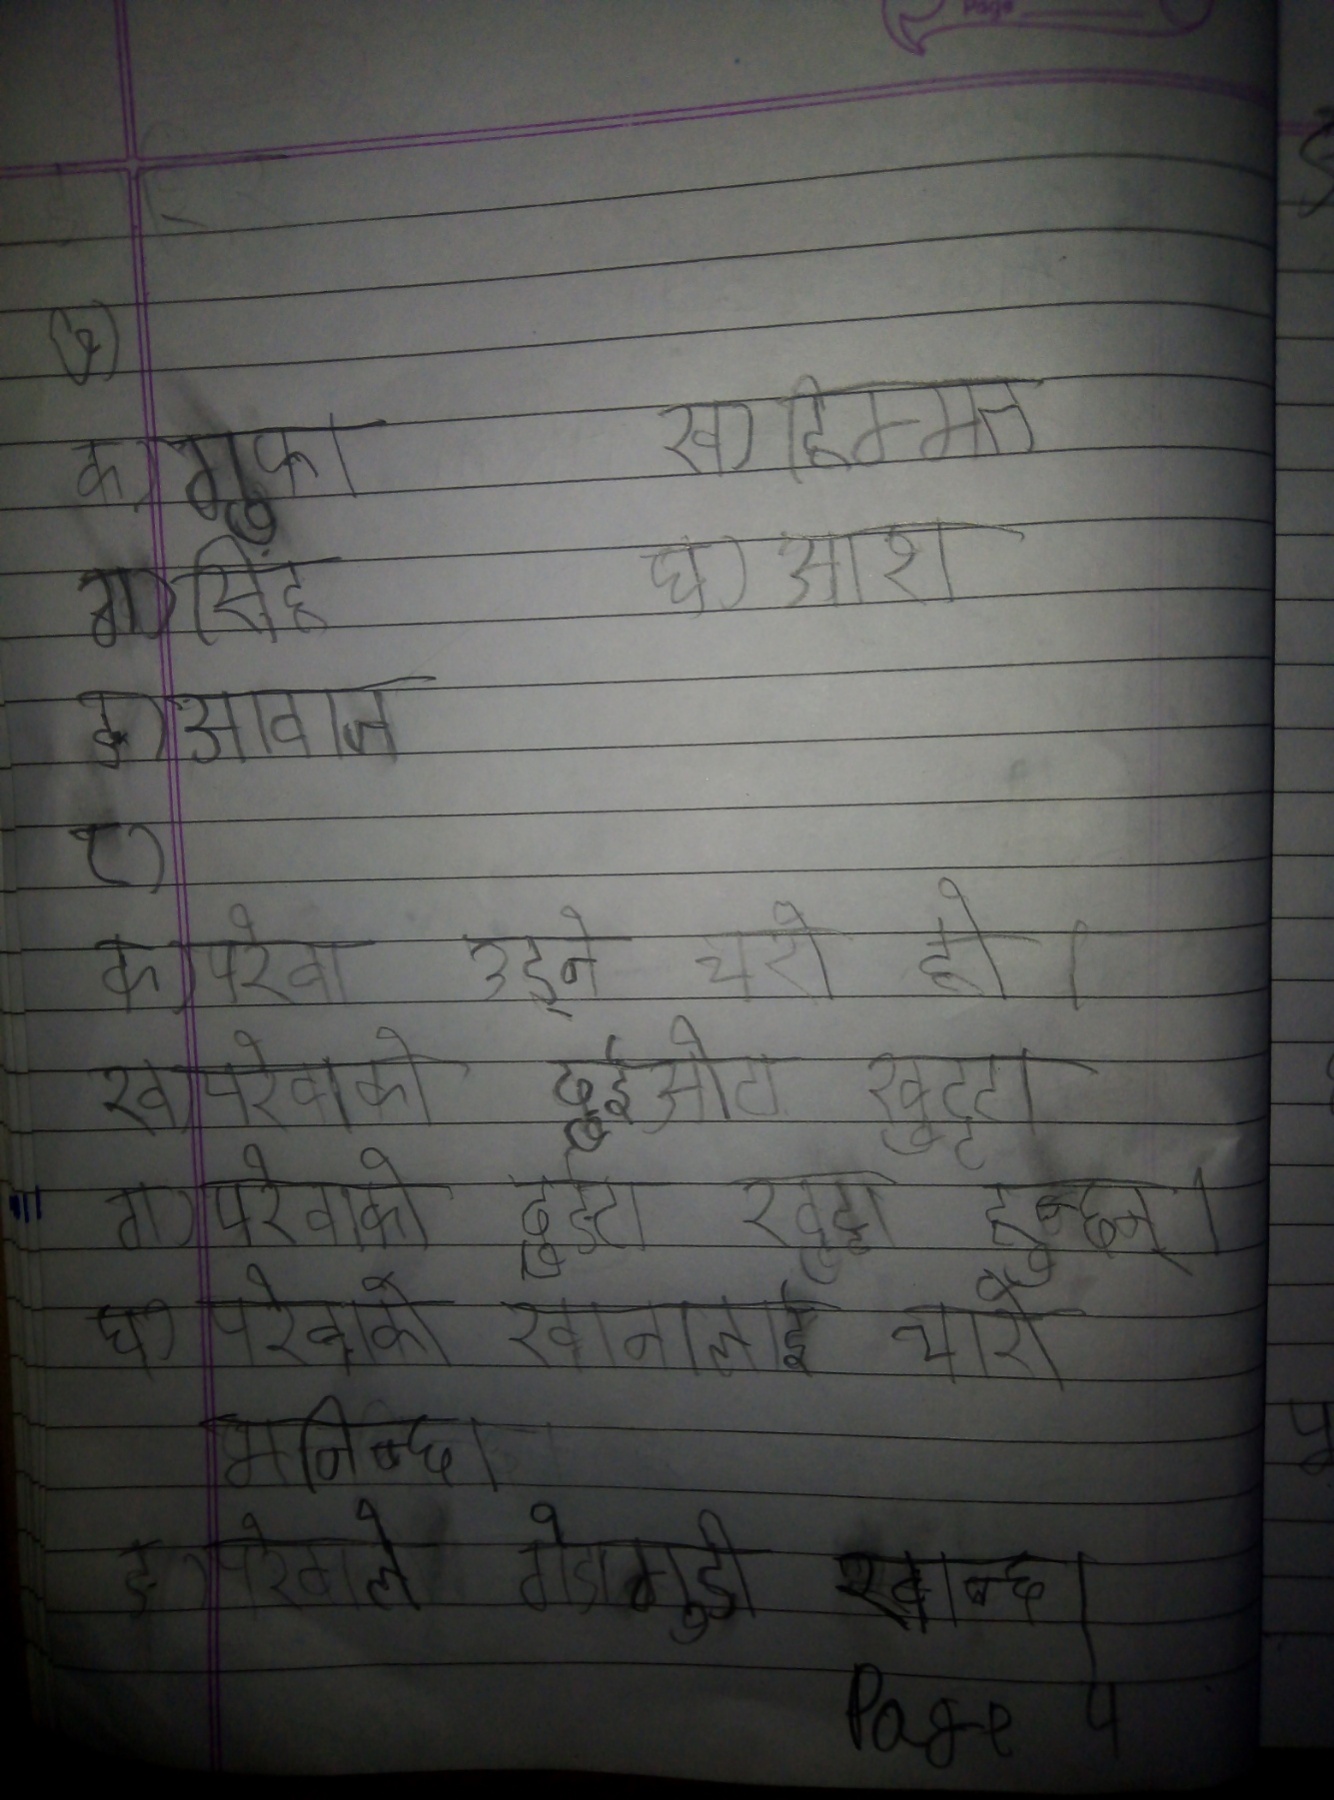 Page
क) गुफा ख) हिम्मत
ग) सिंह घ) आश
ङ) आवाज
८)
क) परेवा उड्ने चरो हो ।
ख) परेवाको दुईओटा खुट्टा
ग) परेवाको दुइटा खुट्टा हुन्छन् ।
घ) परेवाको खानालाई चारो
भनिन्छ।
ङ) परेवाले गेडागुडी खान्छ।
Page 4